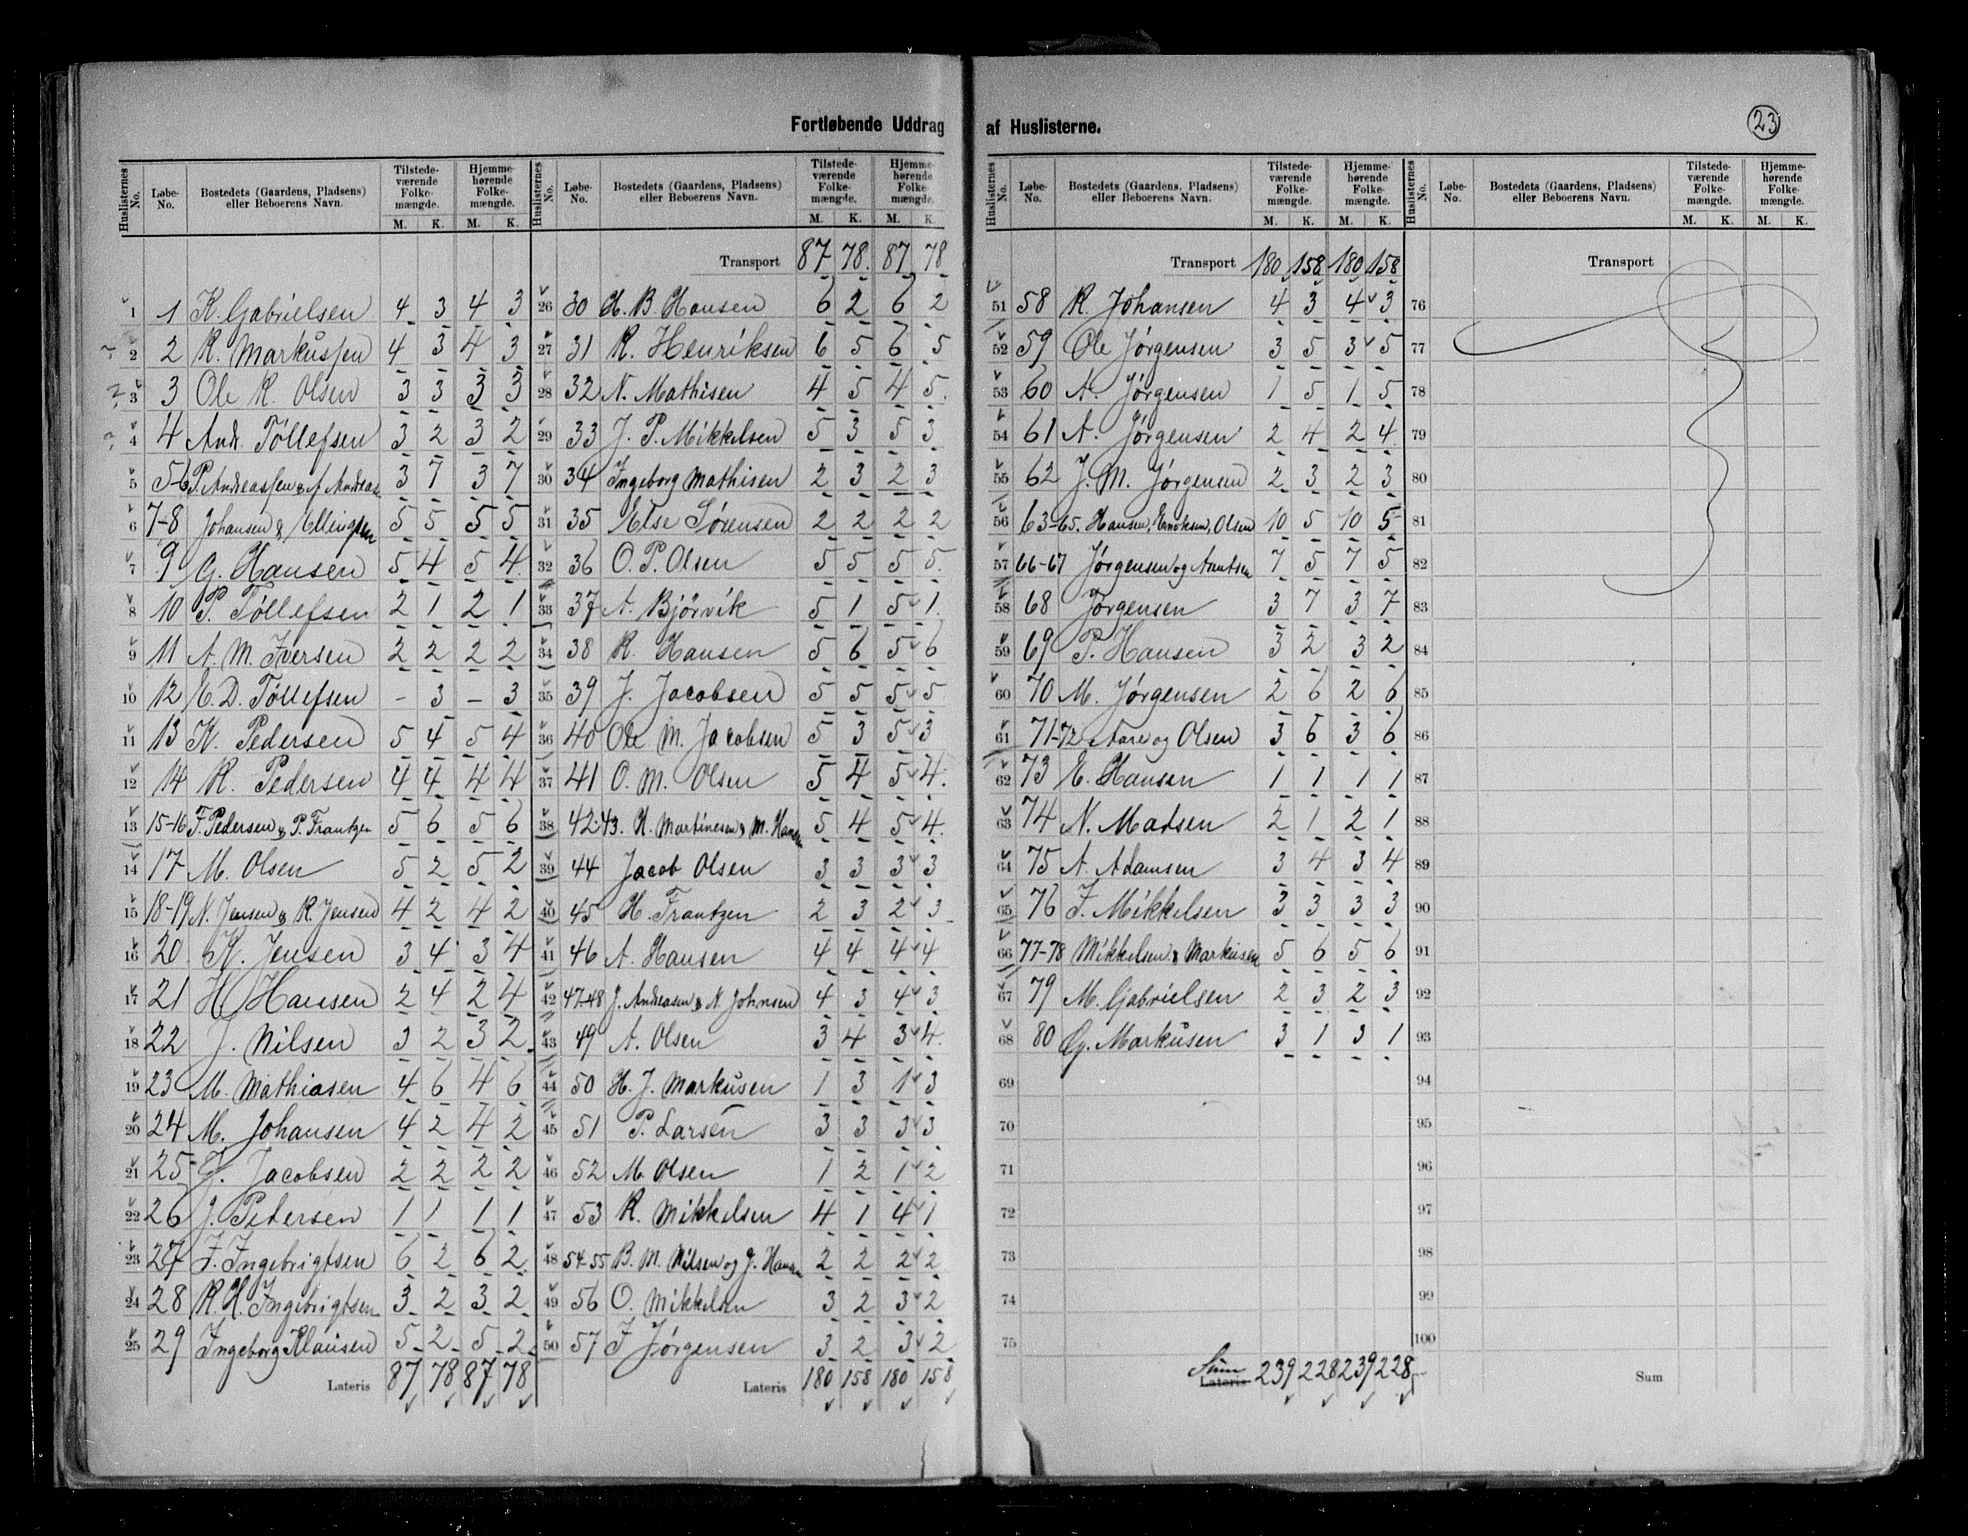 Fortløbende Uddrag af Huslisterne.
23
Huslisternes No. Løbe-No. Bostedets (Gaardens, Pladsens) eller Beboerens Navn. Tilstedeværende Folkemængde. M. K. Hjemmehørende Folkemængde. M. K.
1 1 K. Gabrielsen 4 3 4 3
2 2 R. Markussen 4 3 4 3
3 3 Ole R. Olsen 3 3 3 3
4 4 And. Tøllefsen 3 2 3 2
5 5-6 P. Andreassen & A. Andreas 3 7 3 7
6 7-8 Johansen & Ellingsen 5 5 5 5
7 9 G. Hansen 5 4 5 4
8 10 P. Tøllefsen 2 1 2 1
9 11 A. M. Iversen 2 2 2 2
10 12 E. D. Tøllefsen - 3 - 3
11 13 K. Pedersen 5 4 5 4
12 14 R. Pedersen 4 4 4 4
13 15-16 F. Pedersen & P. Frantzen 5 6 5 6
14 17 M. Olsen 5 2 5 2
15 18-19 N. Jensen & R. Jensen 4 2 4 2
16 20 K. Jensen 3 4 3 4
17 21 H. Hansen 2 4 2 4
18 22 J. Nilsen 3 2 3 2
19 23 M. Mathiasen 4 6 4 6
20 24 M. Johansen 4 2 4 2
21 25 J. Jacobsen 2 2 2 2
22 26 J. Pedersen 1 1 1 1
23 27 J. Ingebrigtsen 6 2 6 2
24 28 R. H. Ingebrigtsen 3 2 3 2
25 29 Ingeborg Klausen 5 2 5 2
Lateris 87 78 87 78
Huslisternes No. Løbe-No. Bostedets (Gaardens, Pladsens) eller Beboerens Navn. Tilstedeværende Folkemængde. M. K. Hjemmehørende Folkemængde. M. K.
Transport 87 78 87 78
26 30 H. B. Hansen 6 2 6 2
27 31 R. Henriksen 6 5 6 5
28 32 N. Mathisen 4 5 4 5
29 33 J. P. Mikkelsen 5 3 5 3
30 34 Ingeborg Mathisen 2 3 2 3
31 35 Else Sørensen 2 2 2 2
32 36 O. P. Olsen 5 5 5 5
33 37 A. Bjørvik 5 1 5 1
34 38 R. Hansen 5 6 5 6
35 39 J. Jacobsen 5 5 5 5
36 40 Ole M. Jacobsen 5 3 5 3
37 41 O. M. Olsen 5 4 5 4
38 42-43. H. Martinesen & M. Hansen 5 4 5 4
39 44 Jacob Olsen 3 3 3 3
40 45 H. Frantzen 2 3 2 3
41 46 A. Hansen 4 4 4 4
42 47-48 J. Andreasen & N. Johnsen 4 3 4 3
43 49 A. Olsen 3 4 3 4
44 50 H. J. Markusen 1 3 1 3
45 51 P. Larsen 3 3 3 3
46 52 M. Olsen 1 2 1 2
47 53 R. Mikkelsen 4 1 4 1
48 54-55 B. M. Nilsen og J. Hansen 2 2 2 2
49 56 O. Mikkelsen 3 2 3 2
50 57 J. Jørgensen 3 2 3 2
Lateris 180 158 180 158
Huslisternes No. Løbe-No. Bostedets (Gaardens, Pladsens) eller Beboerens Navn. Tilstedeværende Folkemængde. M. K. Hjemmehørende Folkemængde. M. K.
Transport 180 158 180 158
51 58 R. Johansen 4 3 4 3
52 59 Ole Jørgensen 3 5 3 5
53 60 A. Jørgensen 1 5 1 5
54 61 A. Jørgensen 2 4 2 4
55 62 J. M. Jørgensen 2 3 2 3
56 63-65. Hansen, Enoksen, Olsen 10 5 10 5
57 66-67 Jørgensen og Arntsen 7 5 7 5
58 68 Jørgensen 3 7 3 7
59 69 P. Hansen 3 2 3 2
60 70 M. Jørgensen 2 6 2 6
61 71-72 Aare og Olsen 3 6 3 6
62 73 E. Hansen 1 1 1 1
63 74 N. Madsen 2 1 2 1
64 75 A. Adamsen 3 4 3 4
65 76 J. Mikkelsen 3 3 3 3
66 77-78 Mikkelsen & Markusen 5 6 5 6
67 79 M. Gabrielsen 2 3 2 3
68 80 G. Markusen 3 1 3 1
69
70
71
72
73
74
75
Sum Lateris 239 228 239 228
Huslisternes No. Løbe-No. Bostedets (Gaardens, Pladsens) eller Beboerens Navn. Tilstedeværende Folkemængde. M. K. Hjemmehørende Folkemængde. M. K.
Transport
76
77
78
79
80
81
82
83
84
85
86
87
88
89
90
91
92
93
94
95
96
97
98
99
100
Sum